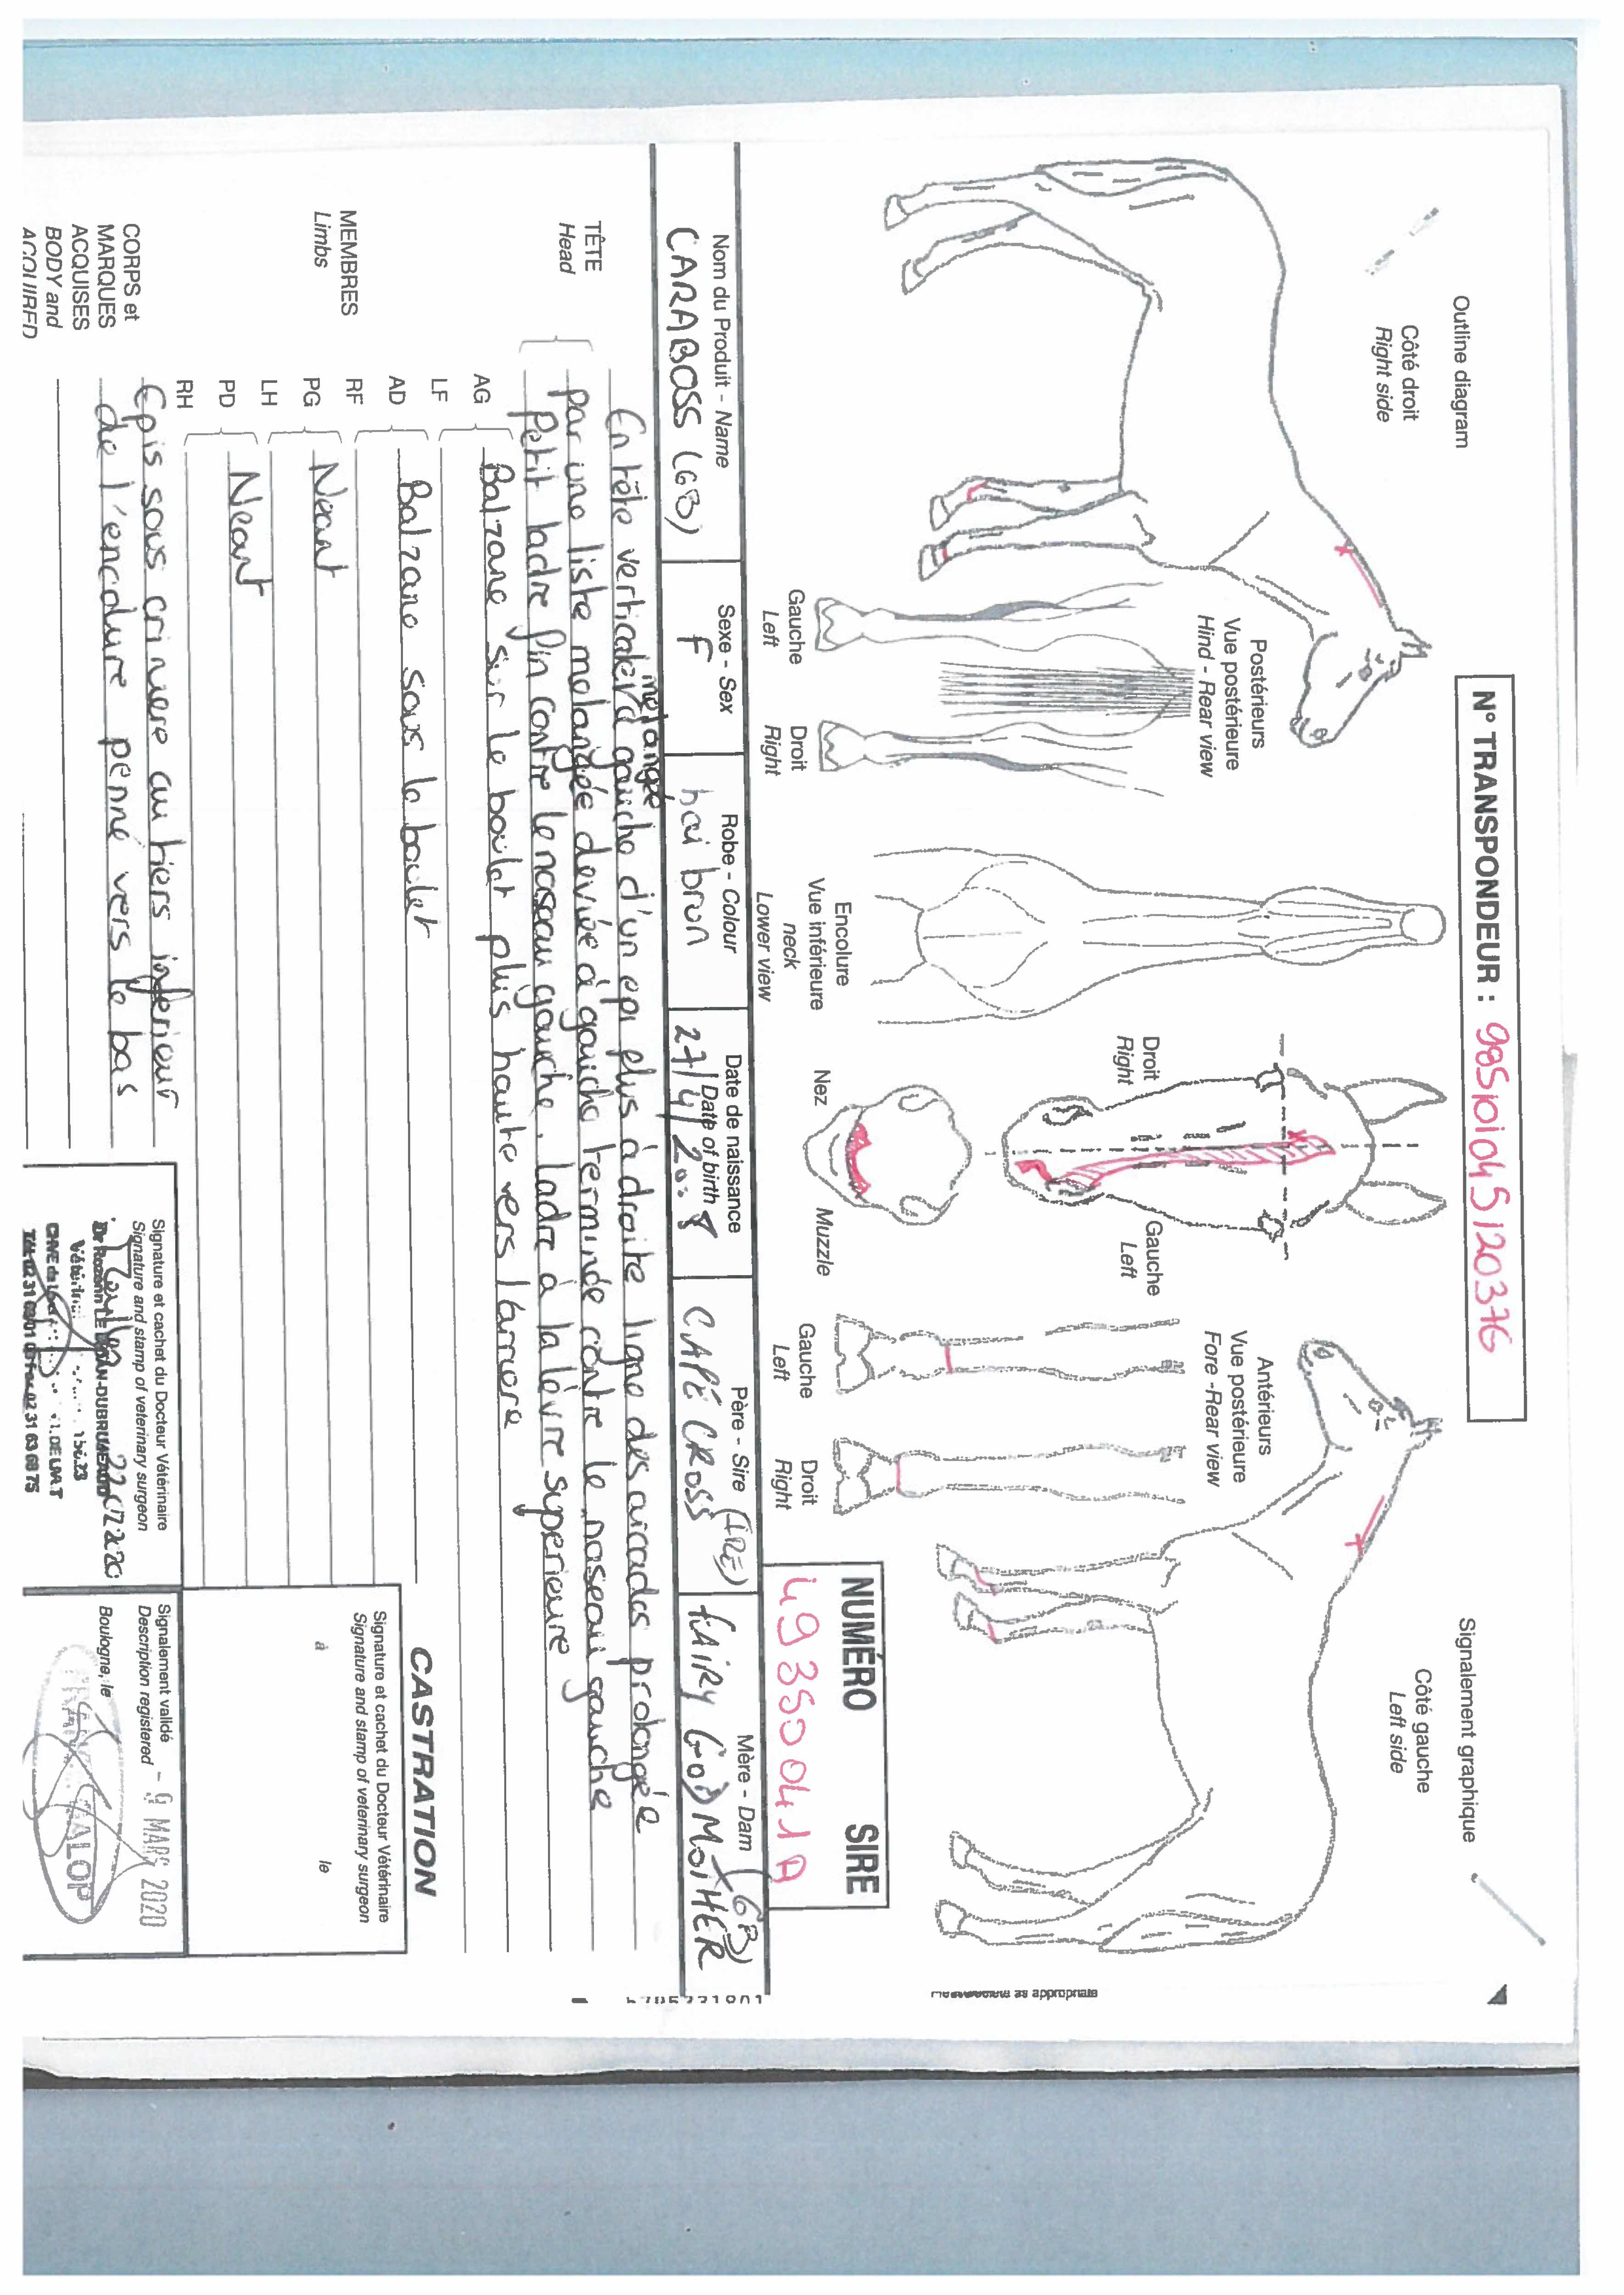 N° TRANSPONDEUR : 985101045120376
Outline diagram
Signalement graphique
Côté droit
Right side
Côté gauche
Left side
Postérieurs
Vue postérieure
Hind - Rear view
Gauche
Left
Droit
Right
Encolure
Vue inférieure
neck
Lower view
Droit
Right
Gauche
Left
Nez
Muzzle
Antérieurs
Vue postérieure
Fore -Rear view
Gauche
Left
Droit
Right
as appropriate
NUMÉRO SIRE
49350041A
Nom du Produit - Name
CARABOSS (GB)
Sexe - Sex
F
Robe - Colour
bai brun
Date de naissance
Date of birth
27/4/2018
Père - Sire
CAPE CROSS (IRE)
Mère - Dam
FAIRY GODMOTHER (GB)
TÊTE
Head
En tête verticale mélangée à gauche d'un epi plus à droite ligne des arcades prolongée
par une liste melangée deviée à gauche terminée contre le naseau gauche
Petit ladre fin contre le naseau gauche. ladre à la lèvre superieure
MEMBRES
Limbs
AG
LF
Balzane sur le boulet plus haute vers l'arriere
AD
RF
Balzane sous le boulet
PG
LH
Neant
PD
RH
Neant
CORPS et
MARQUES
ACQUISES
BODY and
ACQUIRED
Epis sous criniere au tiers inferieur
de l'encolure penné vers le bas
CASTRATION
Signature et cachet du Docteur Vétérinaire
Signature and stamp of veterinary surgeon
à le
Signature et cachet du Docteur Vétérinaire
Signature and stamp of veterinary surgeon
Signalement validé
Description registered
- 9 MARS 2020
Boulogne, le
GALOP